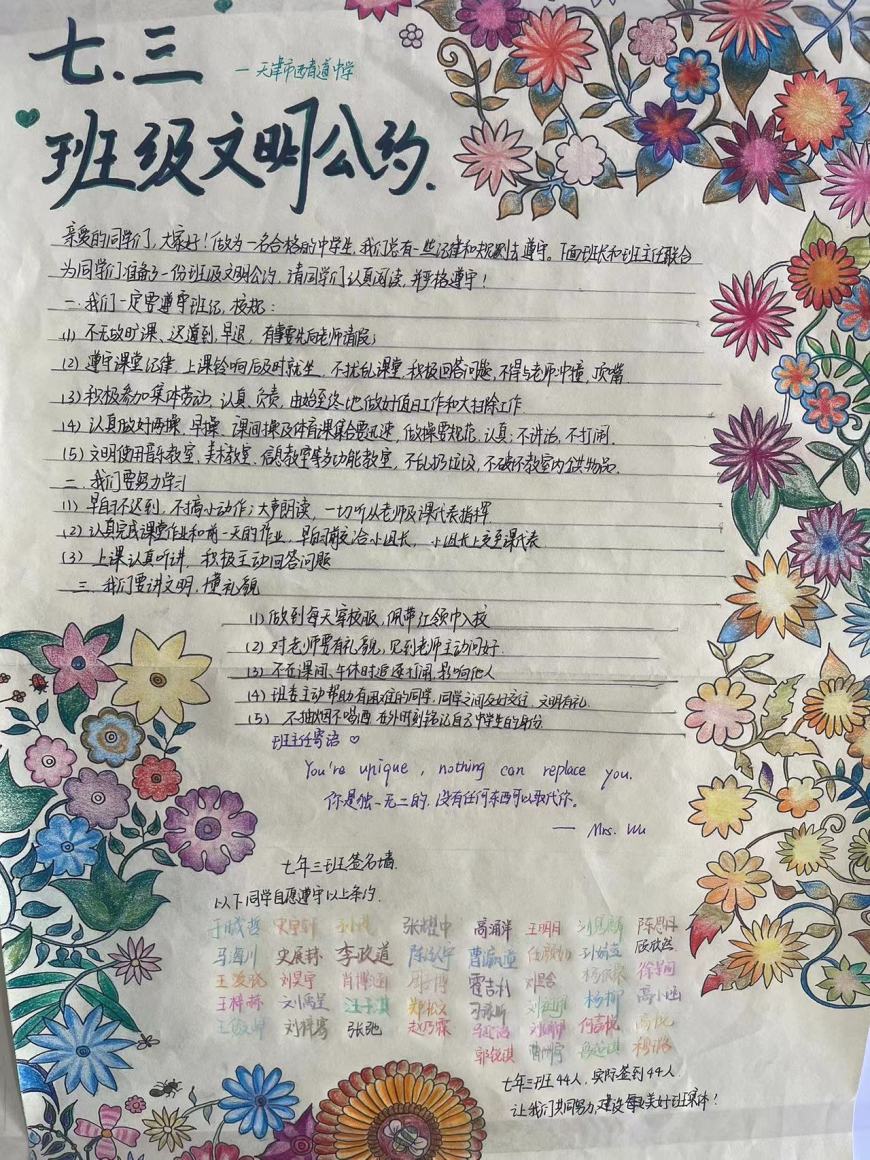 七.三
一 天津市西青道中学
班级文明公约.
亲爱的同学们,大家好!做为一名合格的中学生,我们总有一些纪律和规则去遵守。下面班长和班主任联合
为同学们准备了一份班级文明公约,请同学们认真阅读,并严格遵守!
一.我们一定要遵守班纪,校规:
(1) 不无故旷课、迟到,早退,有事要先向老师请假;
(2) 遵守课堂纪律,上课铃响后及时就坐,不扰乱课堂,积极回答问题,不得与老师冲撞,顶嘴.
(3) 积极参加集体劳动,认真、负责,由始至终地做好值日工作和大扫除工作.
(4) 认真做好两操,早操、课间操及体育课集合要迅速,做操要规范,认真;不讲话,不打闹.
(5) 文明使用音乐教室、美术教室、信息教室等多功能教室,不乱扔垃圾,不破坏教室内公共物品.
二.我们要努力学习
(1) 早自习不迟到,不搞小动作;大声朗读,一切听从老师及课代表指挥
(2) 认真完成课堂作业和前一天的作业,早自习前交给小组长,小组长上交至课代表
(3) 上课认真听讲,积极主动回答问题
三.我们要讲文明,懂礼貌
(1) 做到每天穿校服,佩带红领巾入校
(2) 对老师要有礼貌,见到老师主动问好.
(3) 不在课间、午休时追逐打闹,影响他人
(4) 班委主动帮助有困难的同学,同学之间友好交往,文明有礼.
(5) 不抽烟不喝酒,在外时刻铭记自己中学生的身份
班主任寄语♡
You're unique, nothing can replace you.
你是独一无二的,没有任何东西可以取代你。
— Mrs. Wu
七年三班签名墙.
以下同学自愿遵守以上条约.
于晓哲 张耀中 高涌洋 王明月 陈思丹
马海川 史展赫 李政道
刘昊宇 肖博涵 霍吉利 徐梦间
王梓赫 汪子淇 杨柳 高小涵
张弛 赵乃霖 何嘉悦
郭锐淇
七年三班44人,实际签到44人.
让我们共同努力,建设每最美好班集体!